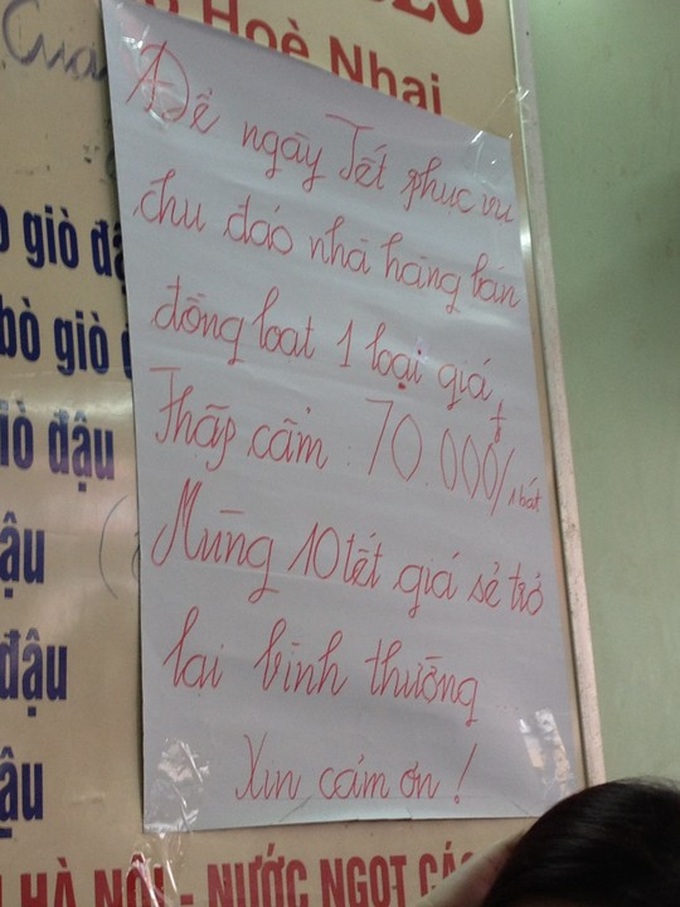 Hoè Nhai
Để ngày Tết phục vụ
chu đáo nhà hàng bán
đồng loạt 1 loại giá
Thập cẩm : 70.000đ/1 bát
Mùng 10 tết giá sẻ trở
lại bình thường ...
Xin cảm ơn !
giò
bò giò
giò đậu
đậu
đậu
đậu
HÀ NỘI - NƯỚC NGỌT CÁC